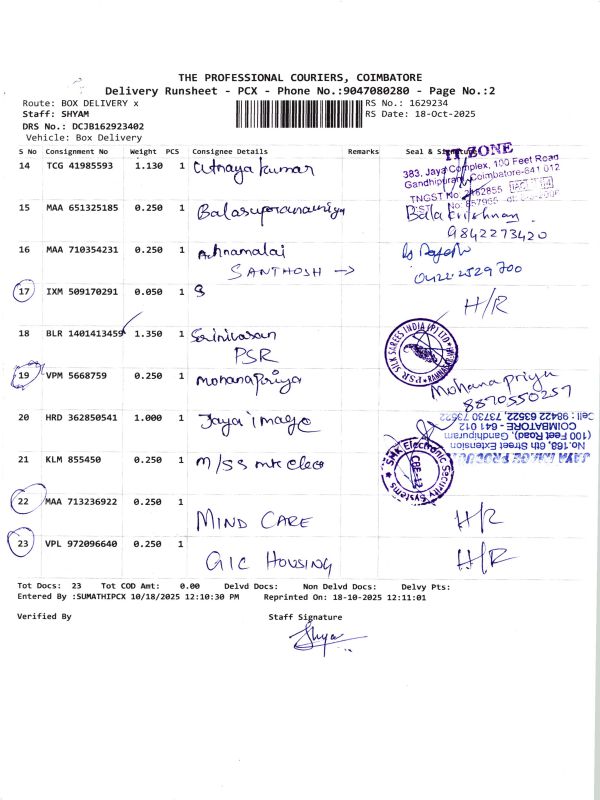 THE PROFESSIONAL COURIERS, COIMBATORE
Delivery Runsheet - PCX - Phone No.:9047080280 - Page No.:2
Route: BOX DELIVERY x
RS No.: 1629234
Staff: SHYAM
RS Date: 18-Oct-2025
DRS No.: DCJB162923402
Vehicle: Box Delivery
S No Consignment No Weight PCS Consignee Details Remarks Seal & Signature
IT ZONE
383, Jaya Complex, 100 Feet Road
Gandhipuram, Coimbatore-641 012
TNGST No.
14 TCG 41985593 1.130 1 kumar
15 MAA 651325185 0.250 1 Balasupramaniya
Balakrishnan
9842273420
16 MAA 710354231 0.250 1 Achnamalai
SANTHOSH →
0422 2529700
17 IXM 509170291 0.050 1 S
H/R
18 BLR 1401413459 1.350 1 Srinivasan
PSR
PSR SILK SAREES INDIA (P) LTD
19 VPM 5668759 0.250 1 Mohanapriya
Mohanapriya
8870550257
20 HRD 362850541 1.000 1 Jaya image
No.168, 6th Street Extension
(100 Feet Road), Gandhipuram
COIMBATORE - 641 012
Cell : 98422 63522, 73730 73522
21 KLM 855450 0.250 1 M/s smk elec
SMK Electronic Security Systems
CBE-12
22 MAA 713236922 0.250 1
MIND CARE
H/R
23 VPL 972096640 0.250 1
GIC HOUSING
H/R
Tot Docs: 23 Tot COD Amt: 0.00 Delvd Docs: Non Delvd Docs: Delvy Pts:
Entered By :SUMATHIPCX 10/18/2025 12:10:30 PM Reprinted On: 18-10-2025 12:11:01
Verified By
Staff Signature
Shya